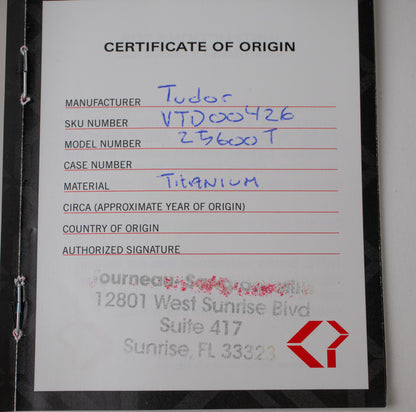 CERTIFICATE OF ORIGIN
MANUFACTURER Tudor
SKU NUMBER VTD00426
MODEL NUMBER 25600T
CASE NUMBER
MATERIAL TITANIUM
CIRCA (APPROXIMATE YEAR OF ORIGIN)
COUNTRY OF ORIGIN
AUTHORIZED SIGNATURE
Tourneau
12801 West Sunrise Blvd
Suite 417
Sunrise, FL 33323